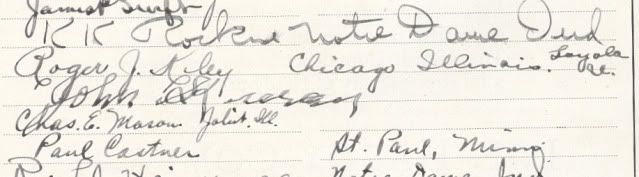 James Swift
K K Rockne Notre Dame Ind
Roger J. Kiley Chicago Illinois. Loyola
John
Chas. E. Mason Joliet, Ill.
Paul Castner St. Paul, Minn.
Notre Dame, Ind